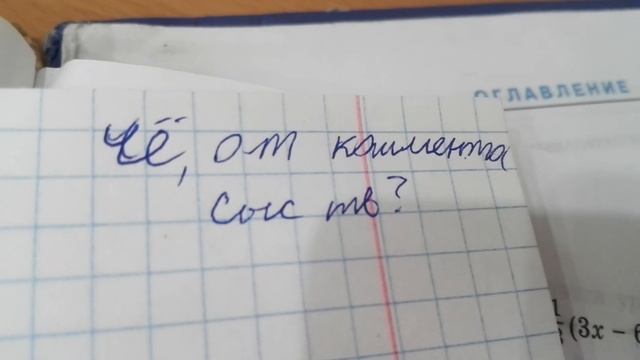 ОГЛАВЛЕНИЕ
Чё, от коммента
сыс тв?
(3x – 6